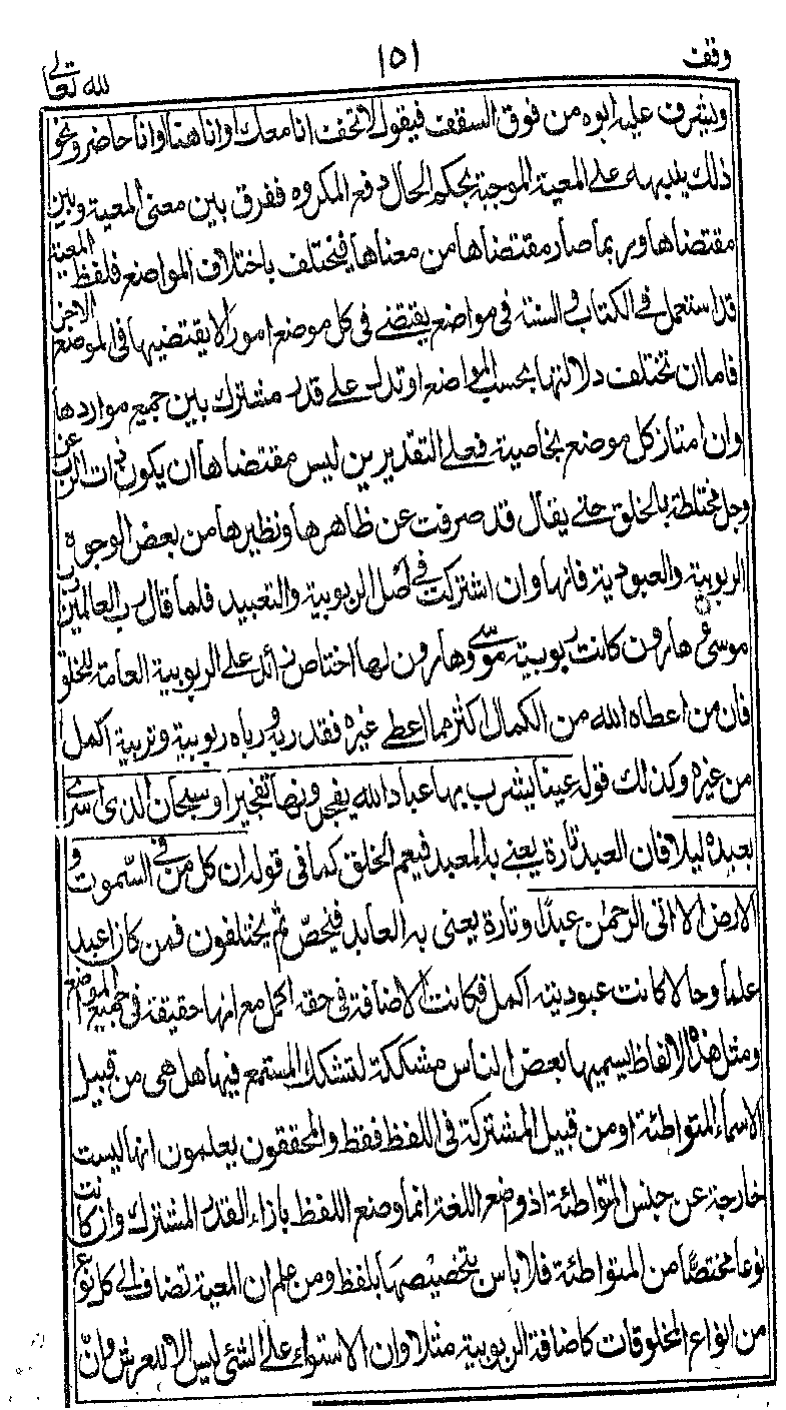 وقف ١٥١ لله تعالى
ويشرف عليه ابوه من فوق السقف فيقول لا تخف انا معك او انا هنا او انا حاضر ونحو
ذلك ينبهه على المعية الموجبة بحكم الحال دفع المكروه ففرق بين معنى المعية وبين
مقتضاها وربما صار مقتضاها من معناها فيختلف باختلاف المواضع فلفظ المعية
قد استعمل في الكتاب والسنة في مواضع يقتضي في كل موضع امورا لا يقتضيها في الموضع الاخر
فاما ان تختلف دلالتها بحسب المواضع او تدل على قدر مشترك بين جميع مواردها
وان امتاز كل موضع بخاصية فعلى التقديرين ليس مقتضاها ان يكون ذات الرب عز
وجل مختلطة بالخلق حتى يقال قد صرفت عن ظاهرها ونظيرها من بعض الوجوه
الربوبية والعبودية فانها وان اشتركت في اصل الربوبية والتعبيد فلما قال رب العالمين رب
موسى وهارون كانت ربوبية موسى وهارون لها اختصاص زائد على الربوبية العامة للخلق
فان من اعطاه الله من الكمال اكثر مما اعطى غيره فقد ربه ورباه ربوبية وتربية اكمل
من غيره وكذلك قوله عينا يشرب بها عباد الله يفجرونها تفجيرا وسبحان الذي اسرى
بعبده ليلا فان العبد تارة يعني به المعبد فيعم الخلق كما في قوله ان كل من في السموت و
الارض الا اتى الرحمن عبدا وتارة يعنى به العابد فيخص ثم يختلفون فمن كان اعبد
علما وحالا كانت عبوديته اكمل فكانت الاضافة في حقه اكمل مع انها حقيقة في جميع المواضع
ومثل هذه الالفاظ يسميها بعض الناس مشككة لتشكك المستمع فيها هل هي من قبيل
الاسماء المتواطئة او من قبيل المشتركة في اللفظ فقط والمحققون يعلمون انها ليست
خارجة عن جنس المتواطئة اذ وضع اللغة انما وضع اللفظ بازاء القدر المشترك وان كانت
نوعا مختصا من المتواطئة فلا باس بتخصيصها بلفظ ومن علم ان المعية تضاف الى كل نوع
من انواع المخلوقات كاضافة الربوبية مثلا وان الاستواء على الشئ ليس الا للعرش وان